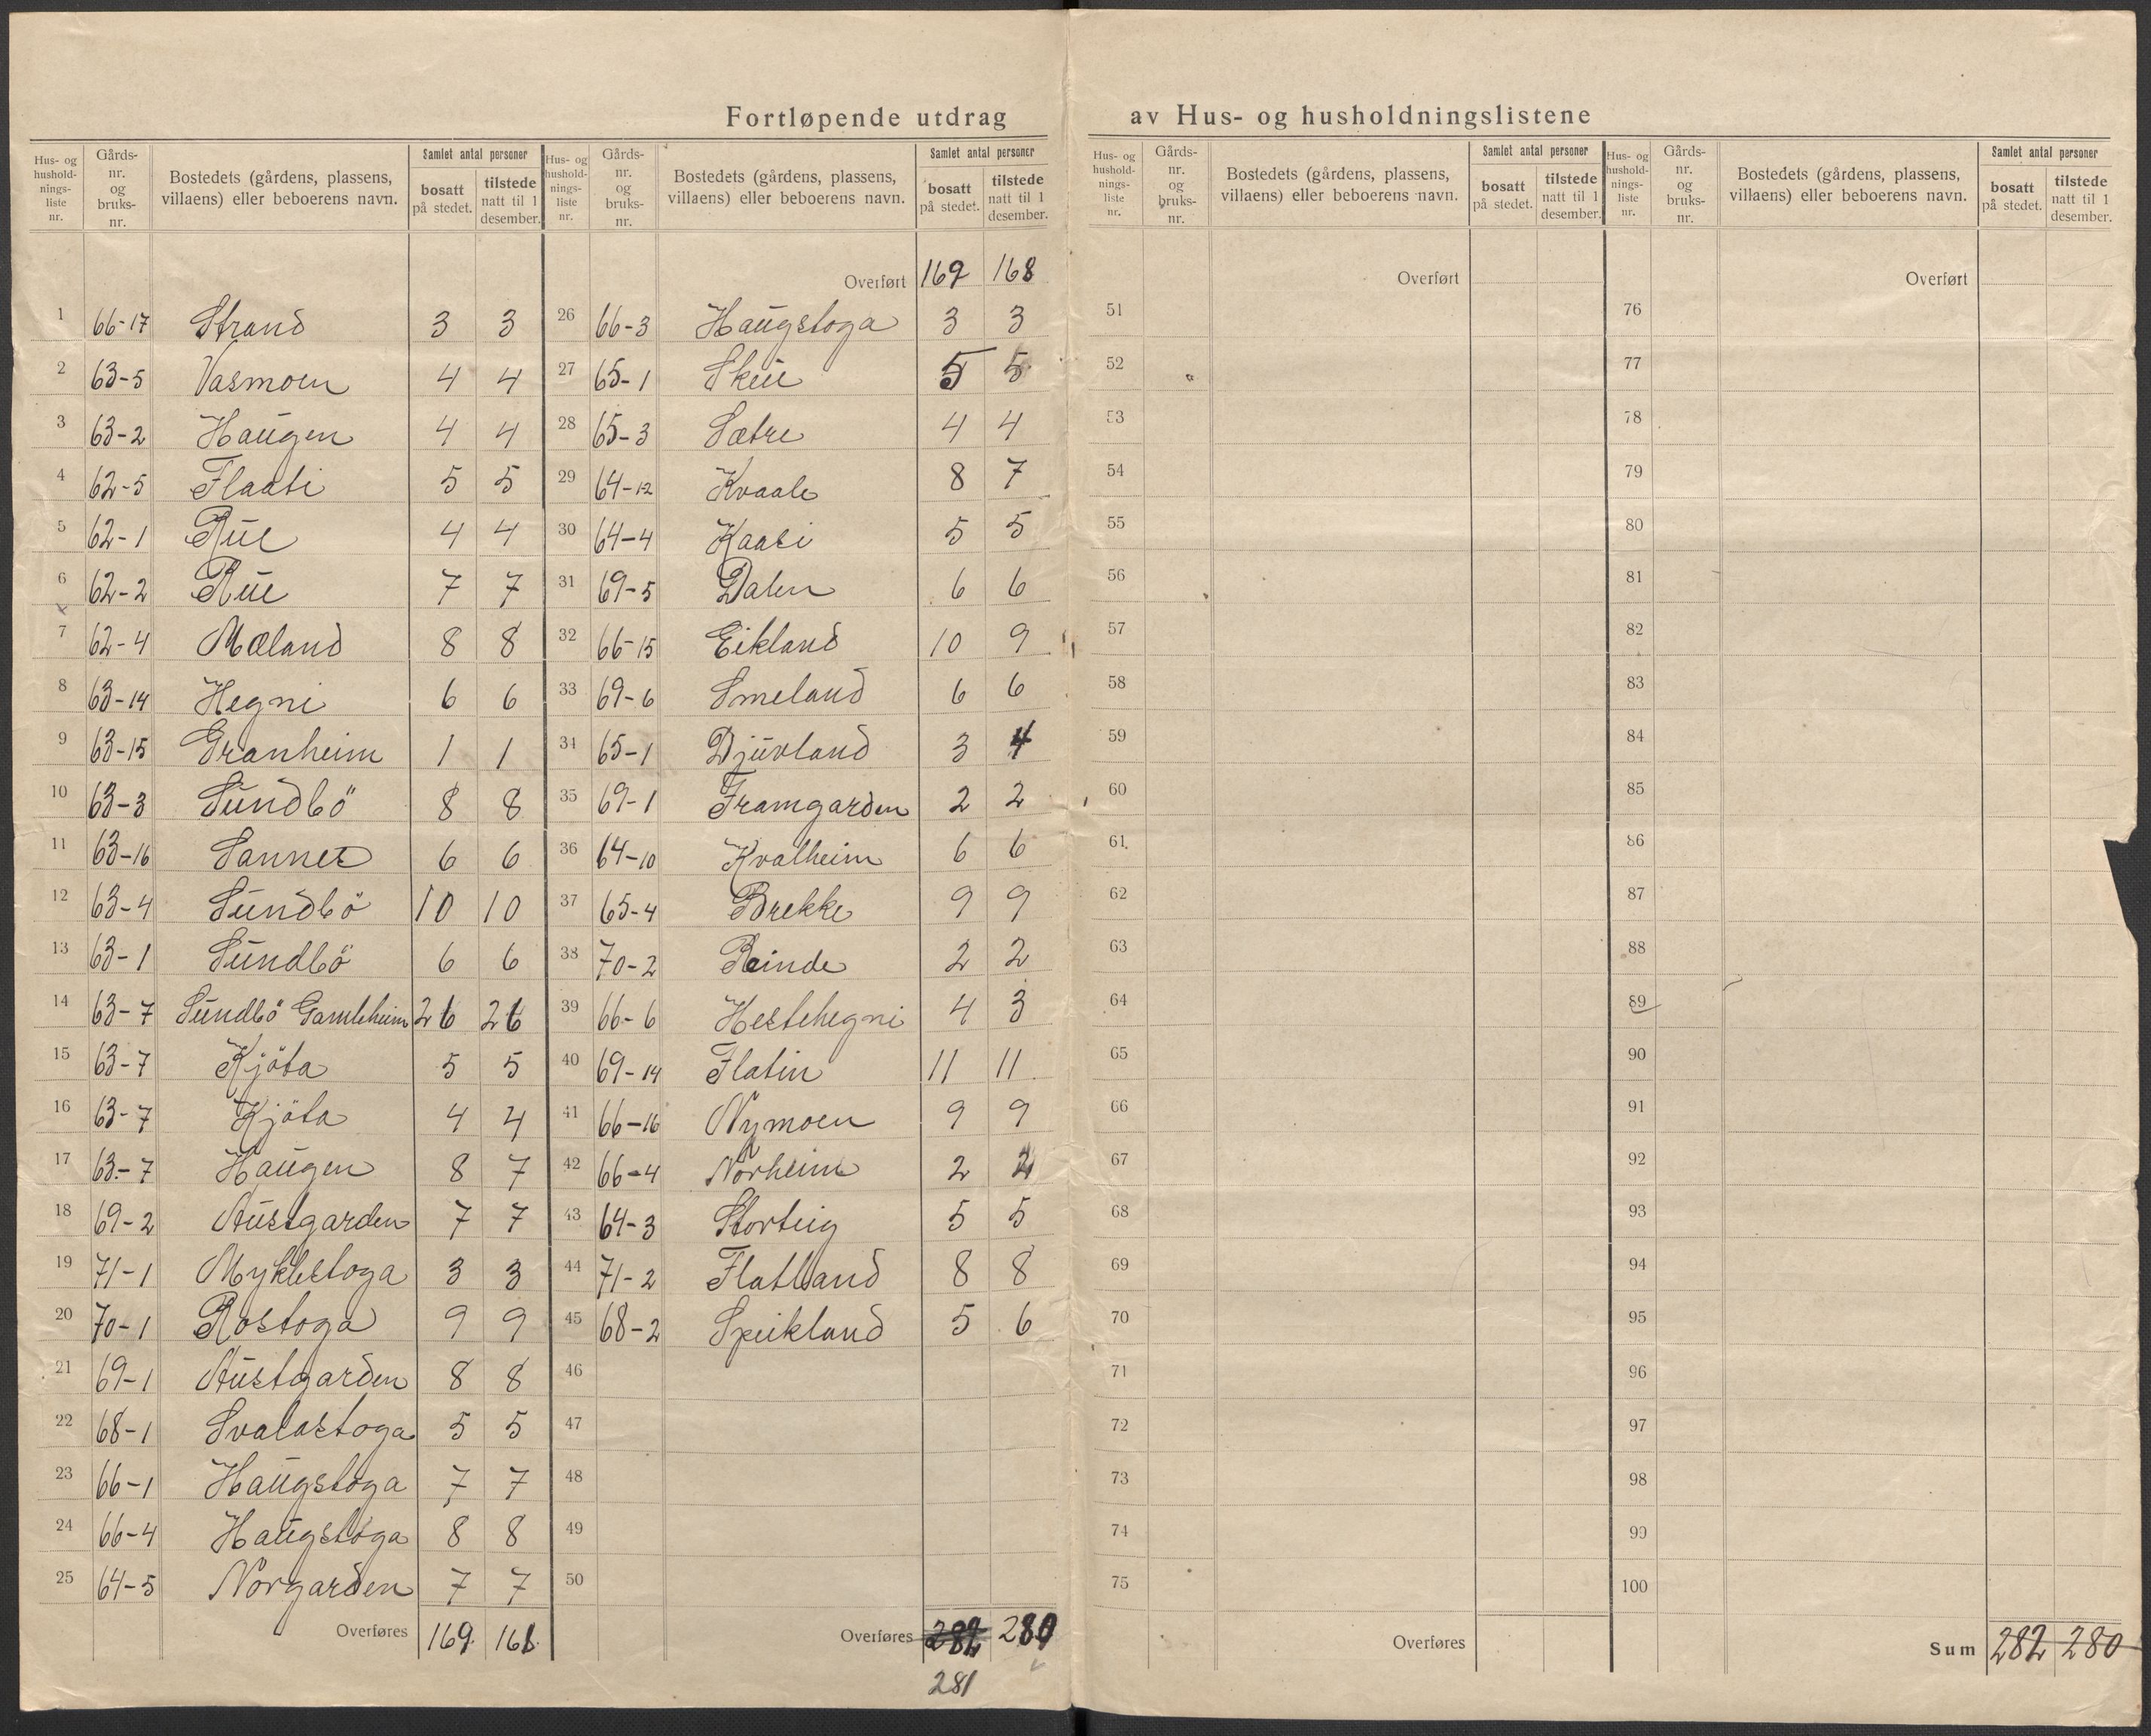 Fortløpende utdrag av Hus- og husholdningslistene
Hus- og husholdnings-liste nr. | Gårds-nr. og bruks-nr. | Bostedets (gårdens, plassens, villaens) eller beboerens navn. | Samlet antal personer | bosatt på stedet. | tilstede natt til 1 desember.
1 66-17 Strand 3 3
2 63-5 Vasmoen 4 4
3 63-2 Haugen 4 4
4 62-5 Flaati 5 5
5 62-1 Rue 4 4
6 62-2 Rue 7 7
7 62-4 Mæland 8 8
8 63-14 Hegni 6 6
9 63-15 Granheim 1 1
10 63-3 Sundbö 8 8
11 63-16 Sannes 6 6
12 63-4 Sundbö 10 10
13 63-1 Sundbö 6 6
14 63-7 Sundbö Gamleheim 26 26
15 63-7 Kjöta 5 5
16 63-7 Kjöta 4 4
17 63-7 Haugen 8 7
18 69-2 Austgarden 7 7
19 71-1 Myklestoga 3 3
20 70-1 Rostoga 9 9
21 69-1 Austgarden 8 8
22 68-1 Svalastoga 5 5
23 66-1 Haugstoga 7 7
24 66-4 Haugstoga 8 8
25 64-5 Norgarden 7 7
Overføres 169 168
Hus- og husholdnings-liste nr. | Gårds-nr. og bruks-nr. | Bostedets (gårdens, plassens, villaens) eller beboerens navn. | Samlet antal personer | bosatt på stedet. | tilstede natt til 1 desember.
Overført 169 168
26 66-3 Haugstoga 3 3
27 65-1 Skue 5 5
28 65-3 Sætre 4 4
29 64-12 Kvaale 8 7
30 64-4 Kaasi 5 5
31 69-5 Dalen 6 6
32 66-15 Eikland 10 9
33 69-6 Smeland 6 6
34 65-1 Djuvland 3 4
35 69-1 Framgarden 2 2
36 64-10 Kvalheim 6 6
37 65-4 Brekke 9 9
38 70-2 Reinde 2 2
39 66-6 Hestehegni 4 3
40 69-14 Flatin 11 11
41 66-16 Nymoen 9 9
42 66-4 Norheim 2 2
43 64-3 Storteig 5 5
44 71-2 Flatland 8 8
45 68-2 Speikland 5 6
46
47
48
49
50
Overføres 282 280
281
Hus- og husholdnings-liste nr. | Gårds-nr. og bruks-nr. | Bostedets (gårdens, plassens, villaens) eller beboerens navn. | Samlet antal personer | bosatt på stedet. | tilstede natt til 1 desember.
Overført
51
52
53
54
55
56
57
58
59
60
61
62
63
64
65
66
67
68
69
70
71
72
73
74
75
Overføres
Hus- og husholdnings-liste nr. | Gårds-nr. og bruks-nr. | Bostedets (gårdens, plassens, villaens) eller beboerens navn. | Samlet antal personer | bosatt på stedet. | tilstede natt til 1 desember.
Overført
76
77
78
79
80
81
82
83
84
85
86
87
88
89
90
91
92
93
94
95
96
97
98
99
100
Sum 282 280